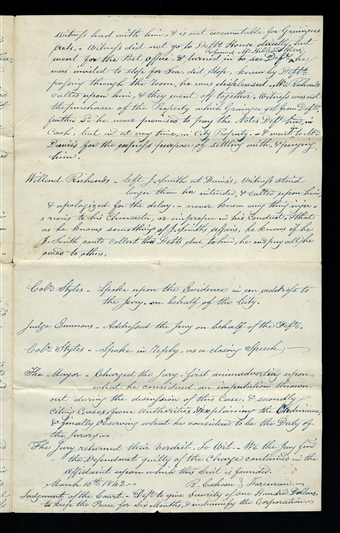 Witness had with him, & is not accountable for Graingers
acts. - Witness did not go to Defts House directly, but
went for the Post Office, & turned in to see Defts, he
was invited to stop for Tea did stop, knew by Defts
passing through the room, he was displeased, Mr. Richards
called upon him, & they went off together, Witness was not
the purchaser of the Property which Grainger got from Defts,
further So he never promised to pay the Notes Deft had, in
Cash, but is at any time, in City Property, - & went to Mr.
Davis's for the express purpose of settling with, & paying
him.
Willard Richards - left J. Smith at Davis', Witness staid
longer than he intended, & called upon him
& apologized for the delay - never knew any thing inju-
rious to his Character, or improper in his Conduct, & that
as he knows something of J. Smiths affairs, he knows if he
J. Smith could collect the Debts due to him, he will pay all he
owes to others.
Colo. Styles - Spoke upon the Evidence in an address to
the Jury, on behalf of the City.
Judge Emmons - Addressed the Jury on behalf of the Deft.
Colo. Styles - Spoke in Reply, as a closing Speech,
The Mayor - Charged the Jury, first animadverting upon
what he considered an imputation thrown
out during the discussion of this Case, & secondly
citing Cases, from Authorities & explaining the Ordinance,
& finally observing what he considered to be the Duty of
the Jurors.
The Jury returned their Verdict. To Wit. We the Jury find
the Defendant guilty of the Charge contained in the
Affidavit upon which this Suit is founded.
March 10th 1842. R. Cahoon } Foreman.
Judgement of the Court. - Deft to give Security of one Hundred Dollars,
to keep the Peace for Six Months, & indemnify the Corporation.